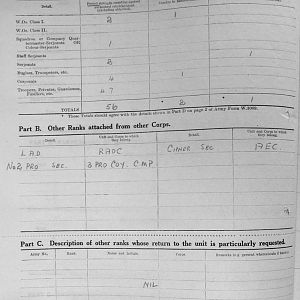 Detail.
W.Os. Class I. 1
W.Os. Class II. 2
Squadron or Company Quar-
termaster-Serjeants OR
Colour-Serjeants 1
Staff Serjeants 1
Serjeants 2
Buglers, Trumpeters, etc. 1
Corporals 4
Troopers, Privates, Guardsmen,
Fusiliers, etc. 47
TOTALS 56 2 1
* These Totals should agree with the details shown in Part D on page 2 of Army Form W.3009.
Part B. Other Ranks attached from other Corps.
Detail. Unit and Corps to which they belong. Detail. Unit and Corps to which they belong.
LAD RAOC SEC AEC
No 2 PRO SEC. 3 PRO COY. C.M.P
Part C. Description of other ranks whose return to the unit is particularly requested.
Army No. Rank. Name and Initials. Corps.
NIL